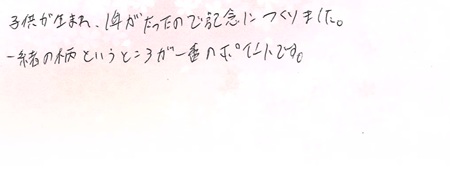 子供が生まれ、1年がたったので記念につくりました。
一緒の柄というところが一番のポイントです。